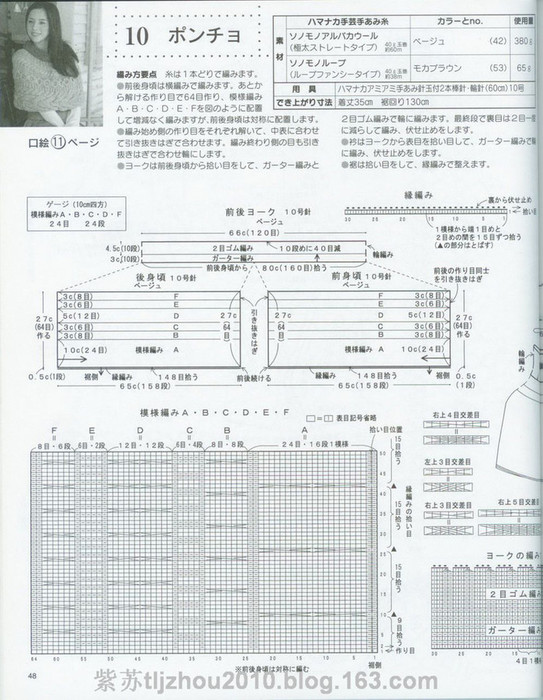 10 ポンチョ
ハマナカ手芸手あみ糸
カラーとno.
使用量
素材
ソノモノアルパカウール
(極太ストレートタイプ)
ベージュ
(42)
380g
ソノモノループ
(ループファンシータイプ)
モカブラウン
(53)
65g
用具
ハマナカアミアミ手あみ針玉付2本棒針・輪針(60cm)10号
でき上がり寸法
着丈35cm 裾回り130cm
編み方要点 糸は1本どりで編みます。
●前後身頃は横編みで編みます。あとか
ら解ける作り目で64目作り、模様編み
A・B・C・D・E・Fを図のように配置
して増減なく編みますが、前後身頃は対称に配置します。
●編み始め側の作り目をそれぞれ解いて、中表に合わせ
て引き抜きはぎで合わせます。編み終わり側の目も引き
抜きはぎで合わせ輪にします。
●ヨークは前後身頃から拾い目をして、ガーター編みと
2目ゴム編みで輪に編みます。最終段で裏目は2目一
に減らして編み、伏せ止めをします。
●衿はヨークから表目を拾い目して、ガーター編みで輪
に編み、伏せ止めをします。
●裾は拾い目をして、縁編みで整えます。
口絵⑪ページ
ゲージ(10cm四方)
模様編みA・B・C・D・F
24目 24段
前後ヨーク 10号針
ベージュ
66c(120目)
4.5c(10段)
3c(10段)
2目ゴム編み
10段めに40目減
ガーター編み
輪編み
前後身頃から
80c(160目)拾う
縁編み
裏から伏せ止め
1模様から端1目めと
2目めの間を15目ずつ拾う
(▲の部分はとばす)
後身頃 10号針
ベージュ
前身頃 10号針
ベージュ
前後の作り目同士
を引き抜きはぎ
引き抜きはぎ
27c
(64目)
作る
3c(8目)
3c(6目)
5c(12目)
3c(6目)
3c(8目)
10c(24目)
F
E
D
C
B
模様編み A
27c
64目
0.5c(1段)
縁編み
148目拾う
裾側
前後続ける
65c(158段)
65c(158段)
模様編みA・B・C・D・E・F
□=｜ 表目記号省略
拾い目位置
F
8目・6段
E
6目・2段
D
12目・12段
C
6目・4段
B
8目・8段
A
24目・16段1模様
15目拾う
縁編みの拾い目
15目拾う
15目拾う
9目拾う
作り目
裾側
※前後身頃は対称に編む
右上4目交差目
左上3目交差目
右上3目交差目
右上5目交差目
輪編み
ヨークの編み
2目ゴム編み
ガーター編み
48
紫苏tljzhou2010.blog.163.com